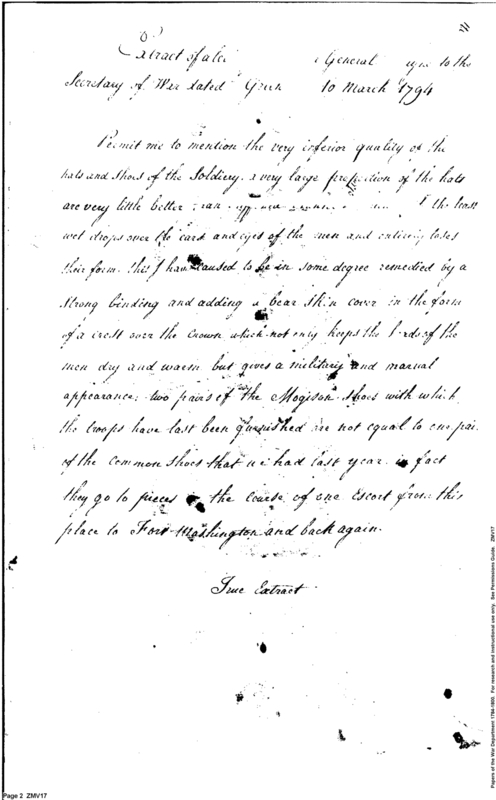 Extract of a General to the
Secretary of War dated 10 March 1794
Permit me to mention the very inferior quality of the
hats and shoes of the Soldiery. a very large proportion of the hats
are very little better the least
wet drops over the ears and eyes of the men and entirely loses
their form. this I have caused to be in some degree remedied by a
strong binding and adding a bear skin cover in the form
of a crest over the crown which not only keeps the heads of the
men dry and warm but gives a military and manual
appearance; two pairs of the shoes with which
the troops have last been furnished are not equal to one pair
of the common shoes that we had last year. in fact
they go to pieces in the course of one Escort from this
place to Fort Washington and back again.
True Extract
Page 2 ZMV17
Papers of the War Department 1784-1800. For research and instructional use only. See Permissions Guide. ZMV17